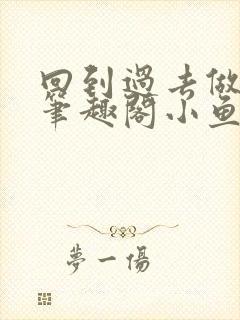 回到過去做
筆趣閣小魚
夢一傷